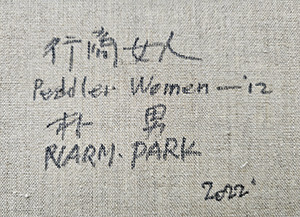 行商女人
Peddler Women—'12
朴 男
NARM. PARK
2022'